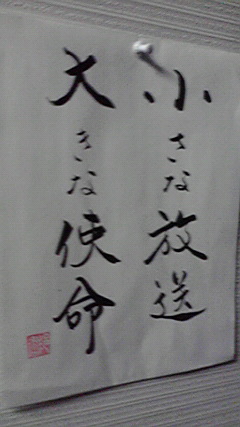 小さな放送
大きな使命